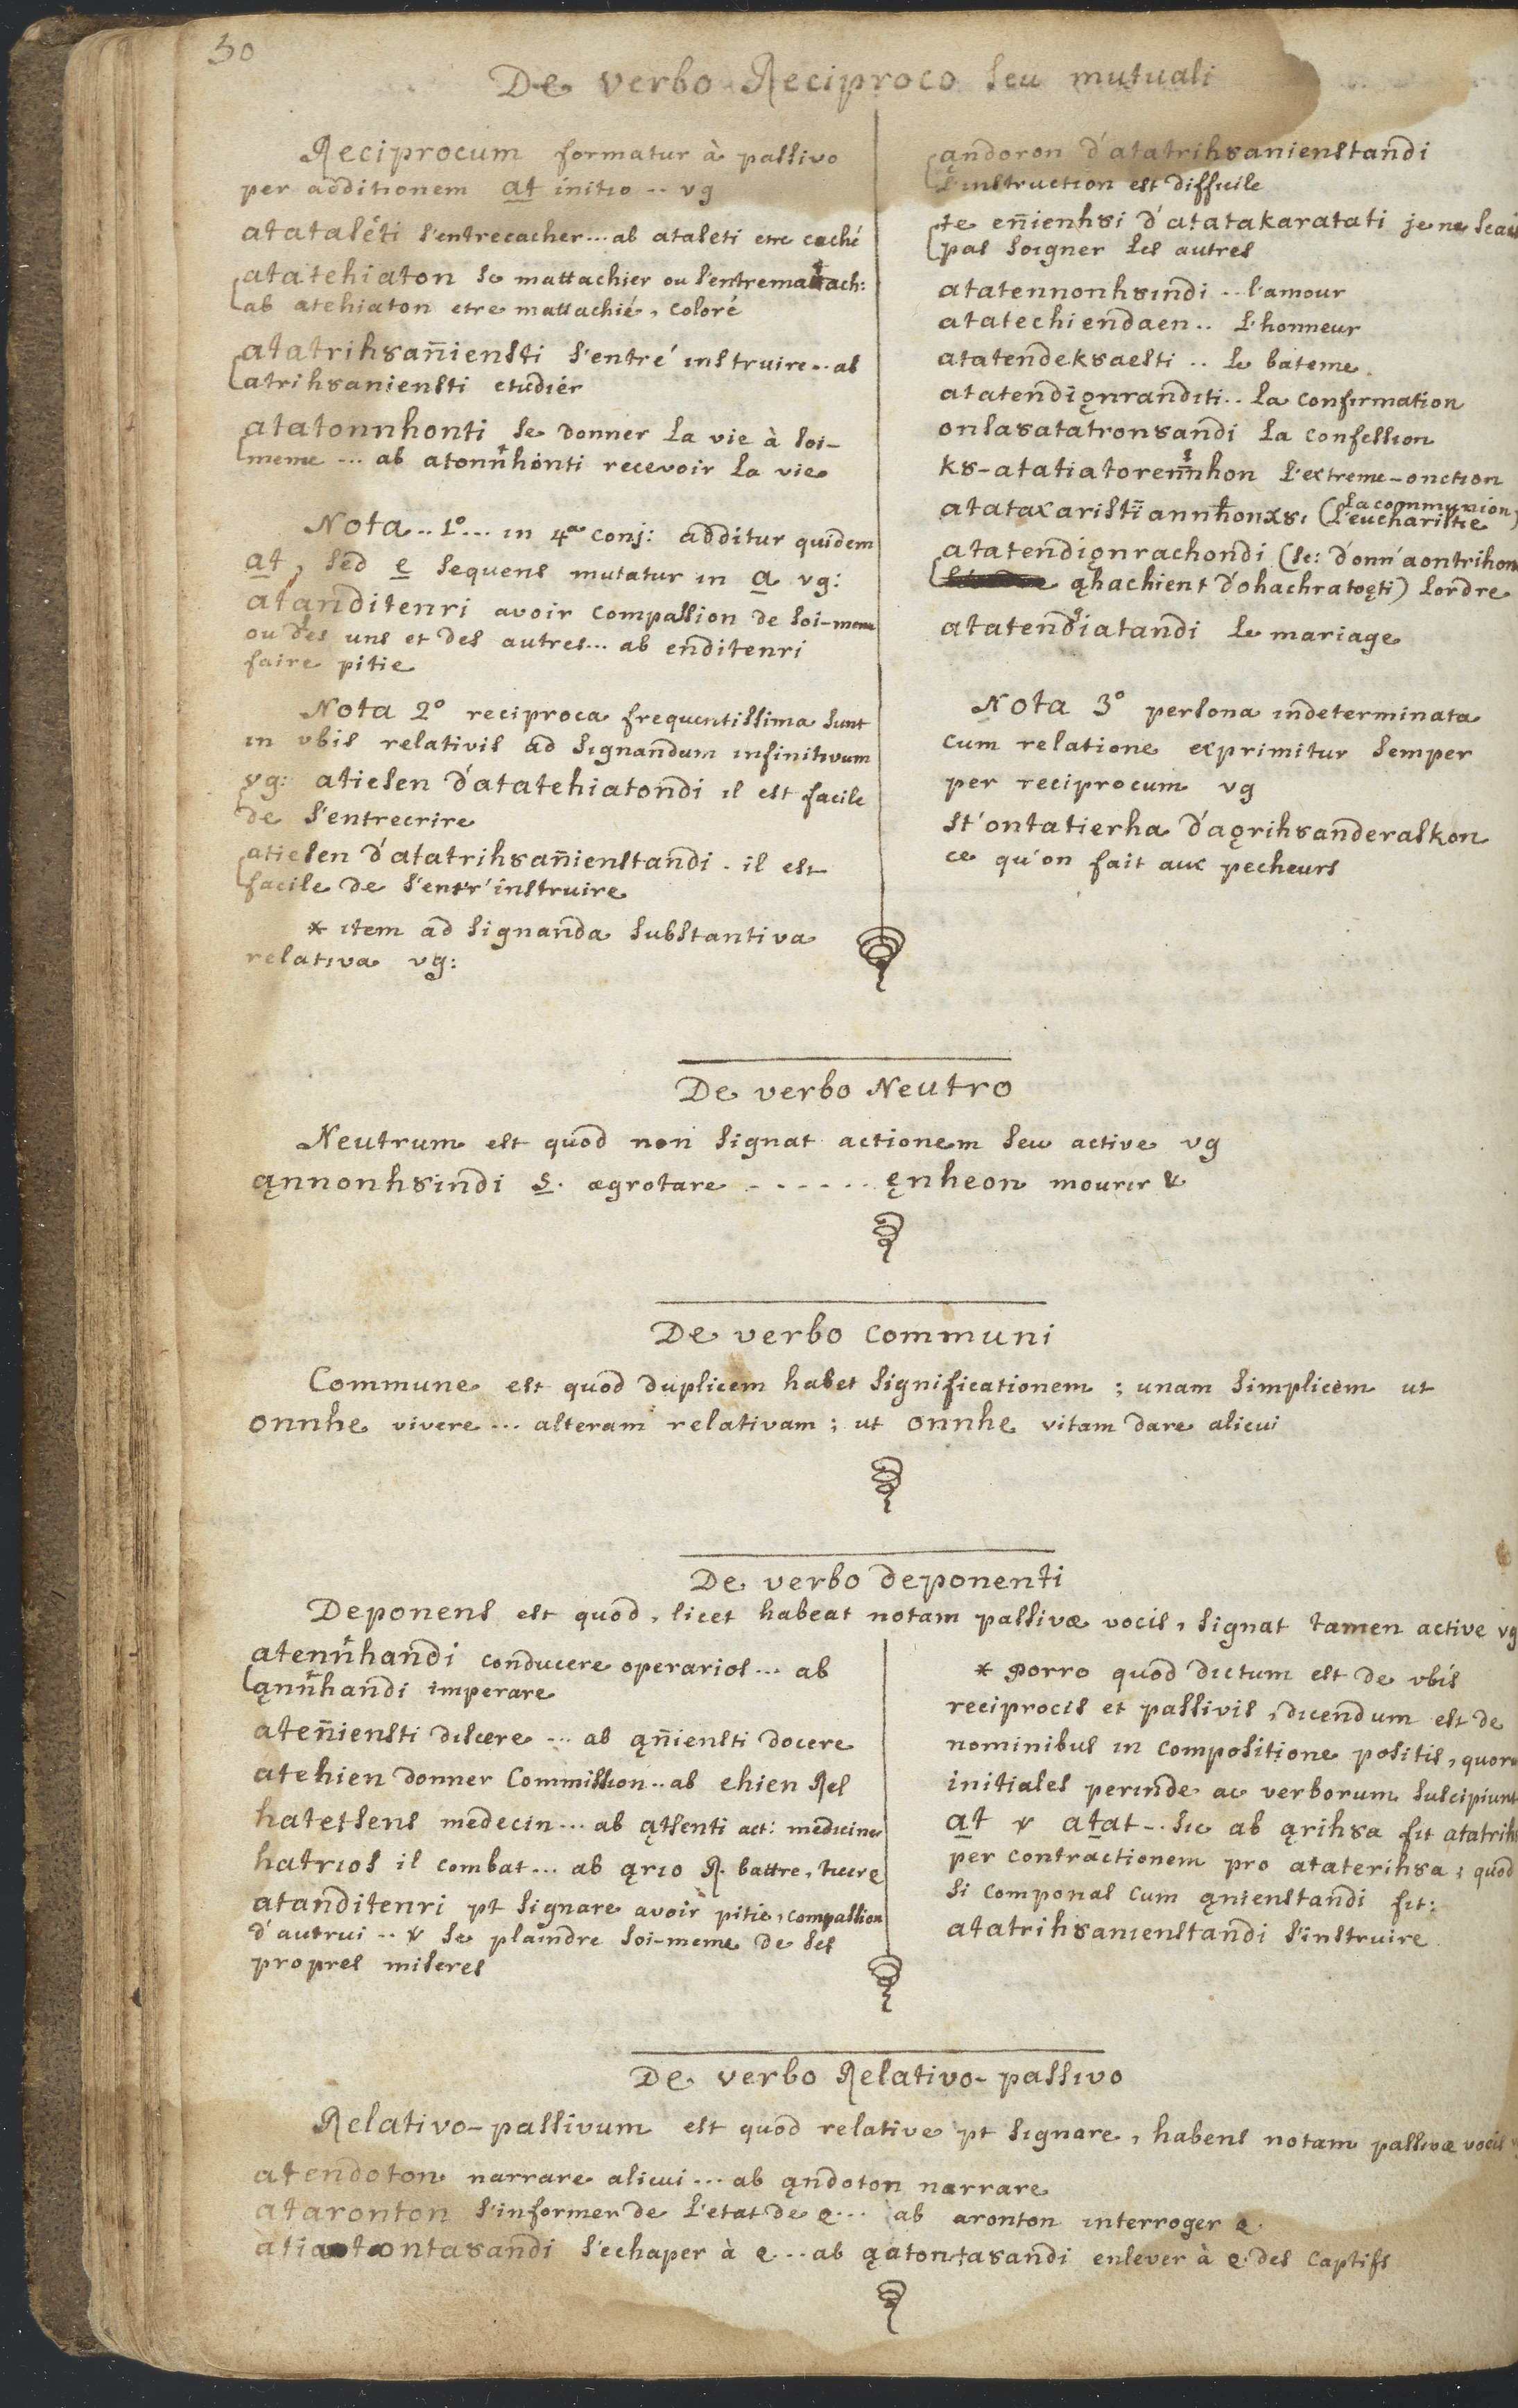 50
De verbo Reciproco seu mutuali
Reciprocum formatur à passivo
per additionem at initio .. vg
atatas8éti s'entrecacher... ab ataseti etre caché
atatehiaton se mattachier ou s'entremattach:
ab atehiaton etre mattachié, coloré
atatrih8an̄iensti s'entre' instruire.. ab
atrih8aniensti etudiér
atatonnhonti se donner la vie à soi-
meme ... ab atonnhonti recevoir la vie
Nota .. 1º... in 4ª conj: additur quidem
at, sed e sequens mutatur in a vg:
atanditenri avoir compassion de soi-meme
ou des uns et des autres... ab enditenri
faire pitie
Nota 2º reciproca frequentissima sunt
in vbis relativis ad signandum infinitivum
vg: atiesen d'atatehiatondi il est facile
de s'entrecrire
atiesen d'atatrih8an̄ienstandi . il est
facile de s'entr'instruire
* item ad signanda substantiva
relativa vg:
ąndoron d'atatrih8anienstandi
l'instruction est difficile
te en̄ienh8i d'atatakaratati je ne scais
pas soigner les autres
atatennonh8indi .. l'amour
atatechiendaen .. l'honneur
atatendek8aesti .. le bateme
atatendiǫnranditi .. la confirmation
onsa8atatron8andi la confession
k8-atatiatorennhon l'extreme-onction
la communion
atatax aristiannhonx8i (l'eucharistie)
atatendiǫnrachondi (sc: d'onn'aontrihon
ąhachient d'ohachratoęti) l'ordre
atatendiatandi le mariage
Nota 3º persona indeterminata
cum relatione exprimitur semper
per reciprocum vg
st'ontatierha d'aǫrih8anderaskon
ce qu'on fait aux pecheurs
De verbo Neutro
Neutrum est quod non signat actionem seu active vg
ąnnonh8indi S. ægrotare . . . . . . ęnheon mourir &
De verbo communi
Commune est quod duplicem habet significationem ; unam simplicem ut
onnhe vivere ... alteram relativam ; ut onnhe vitam dare alicui
De verbo deponenti
Deponens est quod, licet habeat notam passivæ vocis, signat tamen active vg
atennhandi conducere operarios ... ab
ąnnhandi imperare
aten̄iensti discere ... ab ąn̄iensti docere
atehien donner commission .. ab ehien Rel
hatetsens medecin ... ab ątsenti act: medicine
hatrios il combat ... ab ąrio R. battre, tuere
atanditenri pt signare avoir pitie, compassion
d'autrui .. & se plaindre soi-meme de ses
propres miseres
* Porro quod dictum est de vbis
reciprocis et passivis, dicendum est de
nominibus in compositione positis, quoru
initiales perinde ac verborum suscipiunt
at & atat ... sic ab ąrih8a fit atatrih
per contractionem pro ataterih8a ; quod
si componas cum ąnienstandi fit:
atatrih8anienstandi s'instruire
De verbo Relativo-passivo
Relativo-passivum est quod relative pt signare, habens notam passivæ vocis
atendoton narrare alicui ... ab ąndoton narrare
ataronton s'informer de l'etat de q... ab aronton interroger q.
atiatonta8andi s'echaper à q ... ab ąatonta8andi enlever à q. des captifs